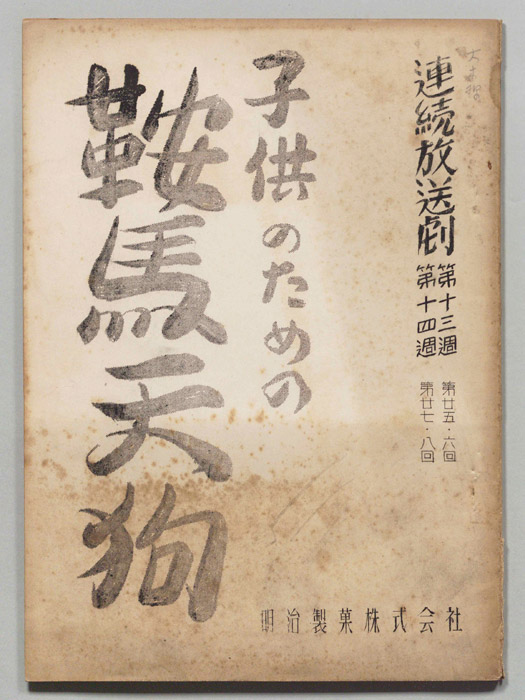 連続放送劇
第十三週
第十四週
第廿五・六回
第廿七・八回
子供のための
鞍馬天狗
明治製菓株式会社